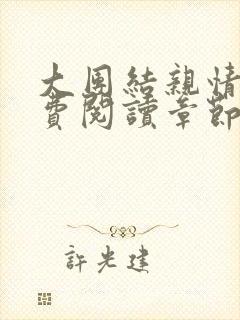 大团結親情
費閱讀章節
許光建